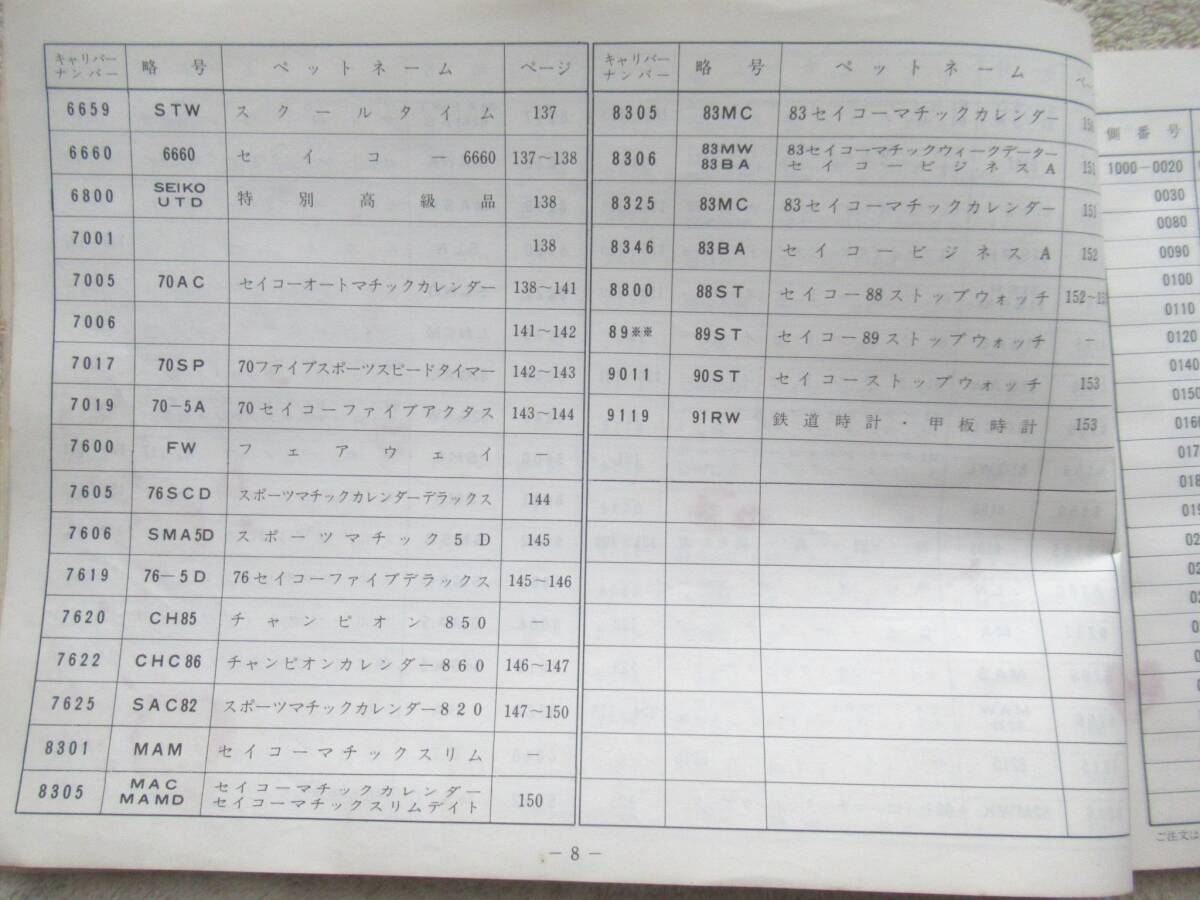 キャリバーナンバー 略号 ペットネーム ページ
6659 STW スクールタイム 137
6660 6660 セイコー6660 137～138
6800 SEIKO UTD 特別高級品 138
7001 138
7005 70AC セイコーオートマチックカレンダー 138～141
7006 141～142
7017 70SP 70ファイブスポーツスピードタイマー 142～143
7019 70-5A 70セイコーファイブアクタス 143～144
7600 FW フェアウェイ －
7605 76SCD スポーツマチックカレンダーデラックス 144
7606 SMA5D スポーツマチック5D 145
7619 76-5D 76セイコーファイブデラックス 145～146
7620 CH85 チャンピオン850
7622 CHC86 チャンピオンカレンダー860 146～147
7625 SAC82 スポーツマチックカレンダー820 147～150
8301 MAM セイコーマチックスリム －
8305 MAC セイコーマチックカレンダー 150
MAMD セイコーマチックスリムデイト
キャリバーナンバー 略号 ペットネーム ペー
8305 83MC 83セイコーマチックカレンダー 150
8306 83MW 83セイコーマチックウィークデーター 151
83BA セイコービジネスA
8325 83MC 83セイコーマチックカレンダー 151
8346 83BA セイコービジネスA 152
8800 88ST セイコー88ストップウォッチ 152～15
89※※ 89ST セイコー89ストップウォッチ －
9011 90ST セイコーストップウォッチ 153
9119 91RW 鉄道時計・甲板時計 153
－ 8 －
側番号
1000-0020
0030
0080
0090
0100
0110
0120
0140
0150
0160
017
018
019
02
02
02
0
0
0
ご注文は